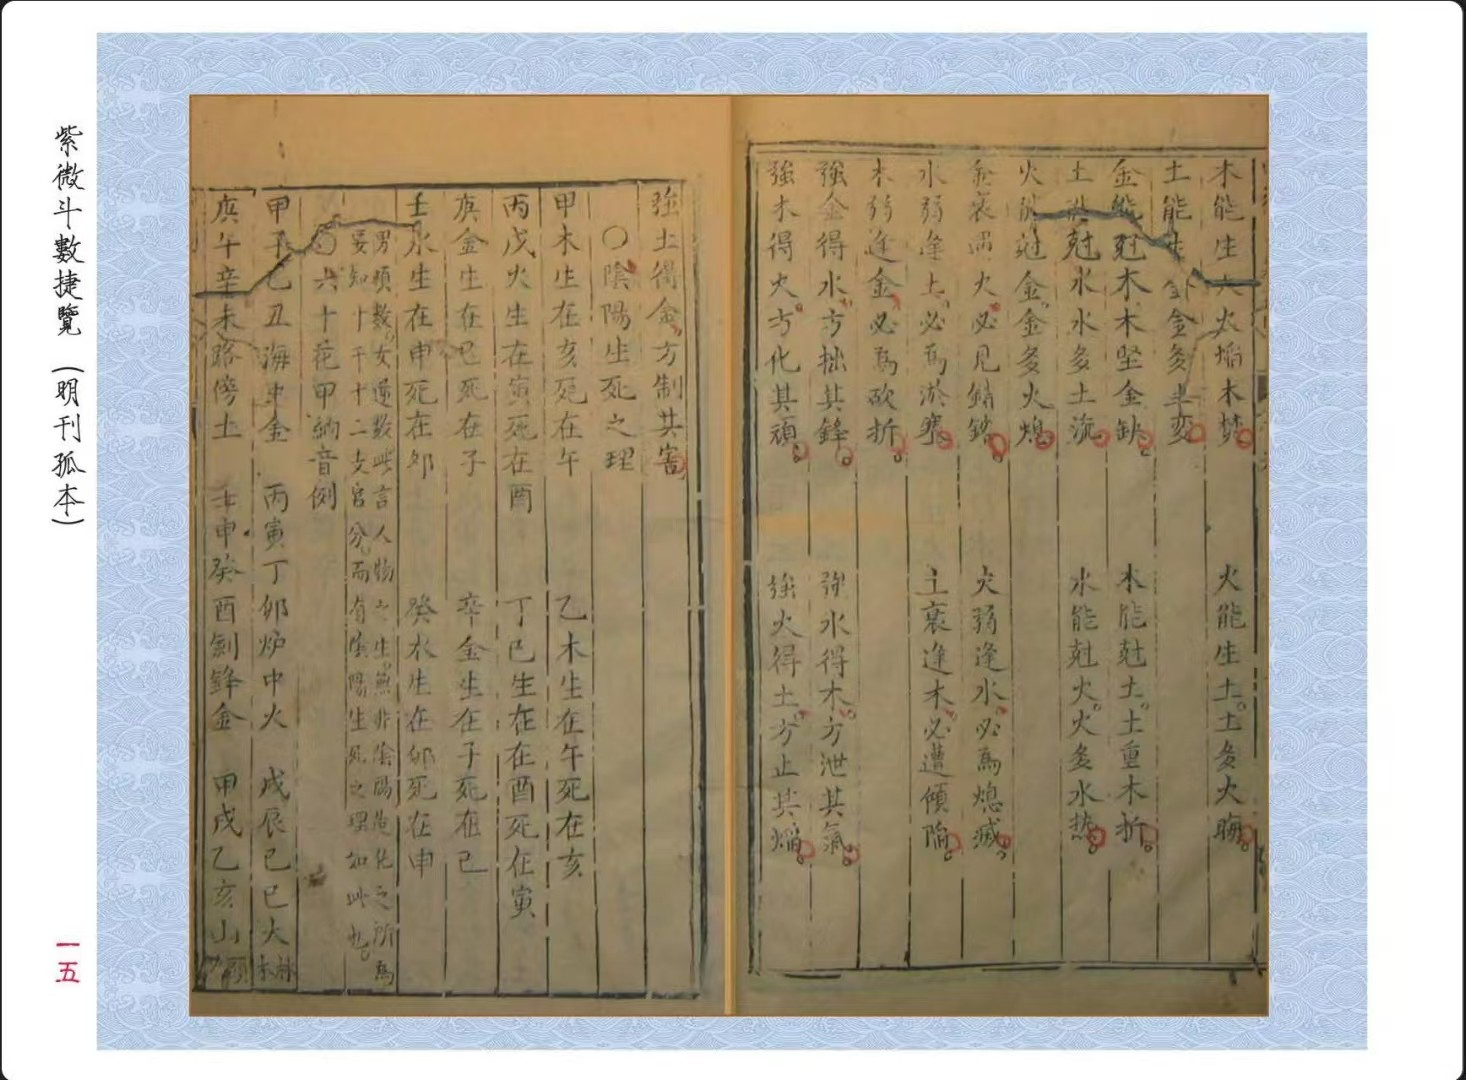 紫微斗數捷覽（明刊孤本）
一五
木能生火火焰木焚 火能生土土多火晦
土能生金金多土变
金能尅木木坚金缺 木能尅土土重木折
土能尅水水多土流 水能尅火火多水熱
火能尅金金多火熄
金衰遇火必見銷鎔 火弱逢水必為熄滅
水弱逢土必為淤塞 土衰逢木必遭傾陷
木弱逢金必為砍折
強金得水方拙其鋒 強水得木方泄其氣
強木得火方化其頑 強火得土方止其焰
強土得金方制其害
〇陰陽生死之理
甲木生在亥死在午 乙木生在午死在亥
丙戊火生在寅死在酉 丁己生在在酉死在寅
庚金生在巳死在子 辛金生在子死在巳
壬水生在申死在卯 癸水生在卯死在申
男順数女逆数此言人物之生無非陰陽造化之所為
要知十干十二支宮分而有陰陽生死之理如此也
〇六十花甲納音例
甲子乙丑海中金 丙寅丁卯炉中火 戊辰己巳大林木
庚午辛未路傍土 壬申癸酉劍鋒金 甲戌乙亥山頭